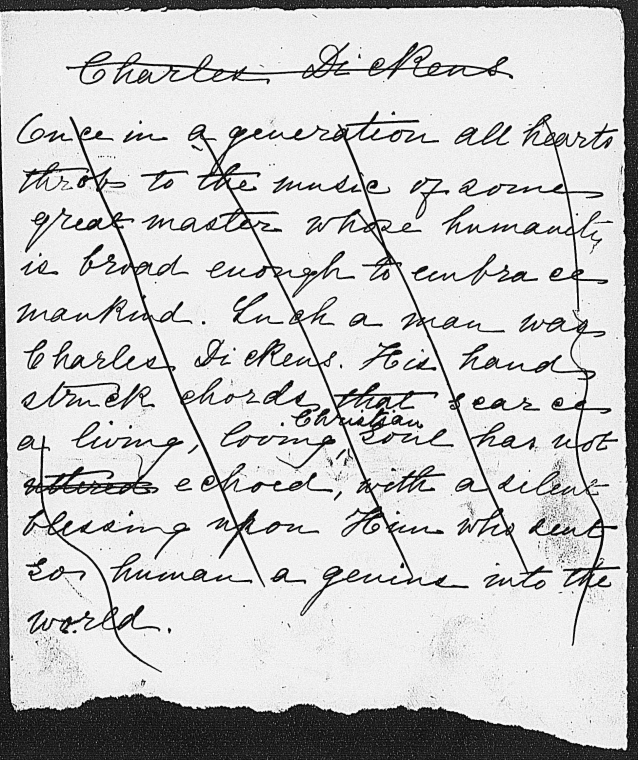 Charles Dickens
Once in a generation all hearts
throbs to the music of some
great master whose humanity
is broad enough to embrace
mankind. Such a man was
Charles Dickens. His hand
struck chords that scarce
Christian
a living, loving, soul has not
uttered echoed, with a silent
blessing upon Him who sent
so human a genius into the
world.